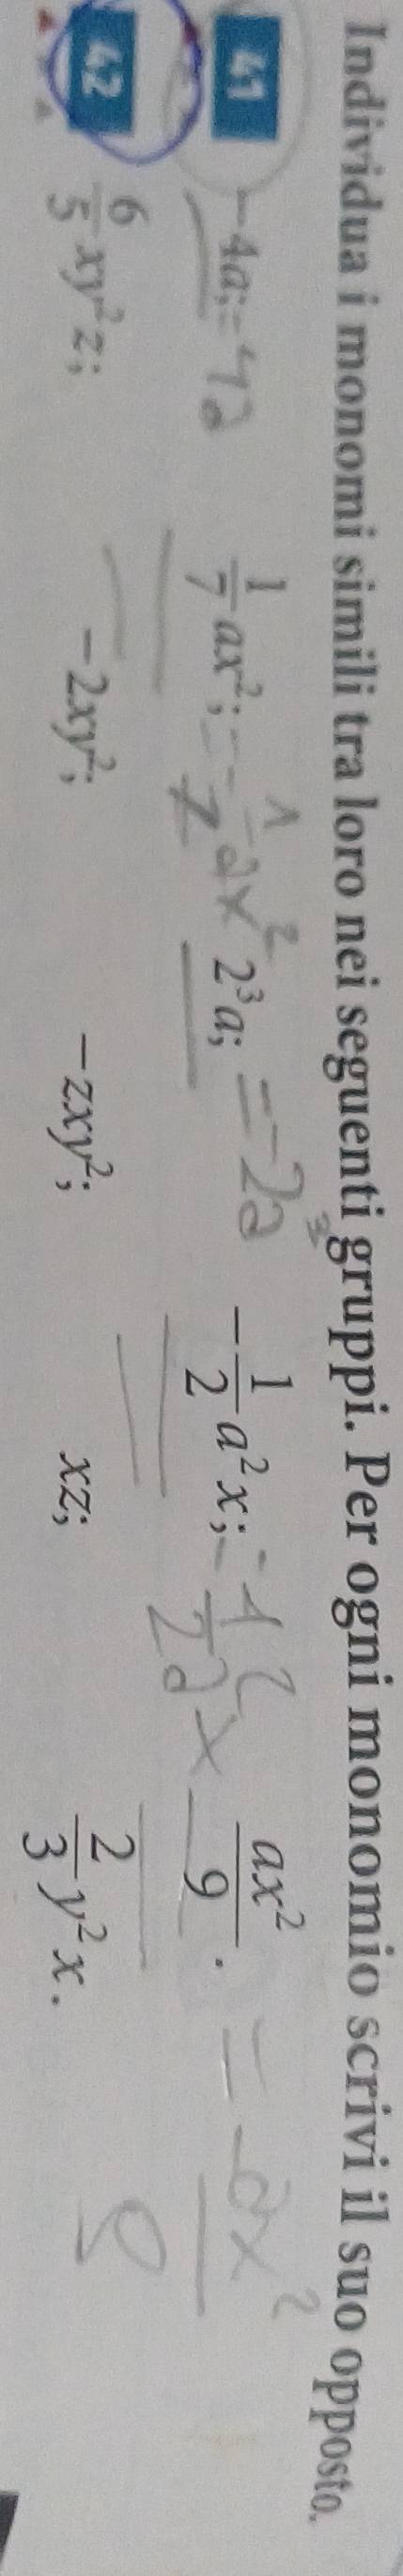 Individua i monomi simili tra loro nei seguenti gruppi. Per ogni monomio scrivi il suo opposto.
41 -4a; = 4a 1/7 ax²; = -1/7 ax² 2³a; = -2³a -1/2 a²x; = 1/2 a²x ax²/9. = -ax²/9
42 6/5 xy²z; -2xy²; -zxy²; xz; 2/3 y²x.